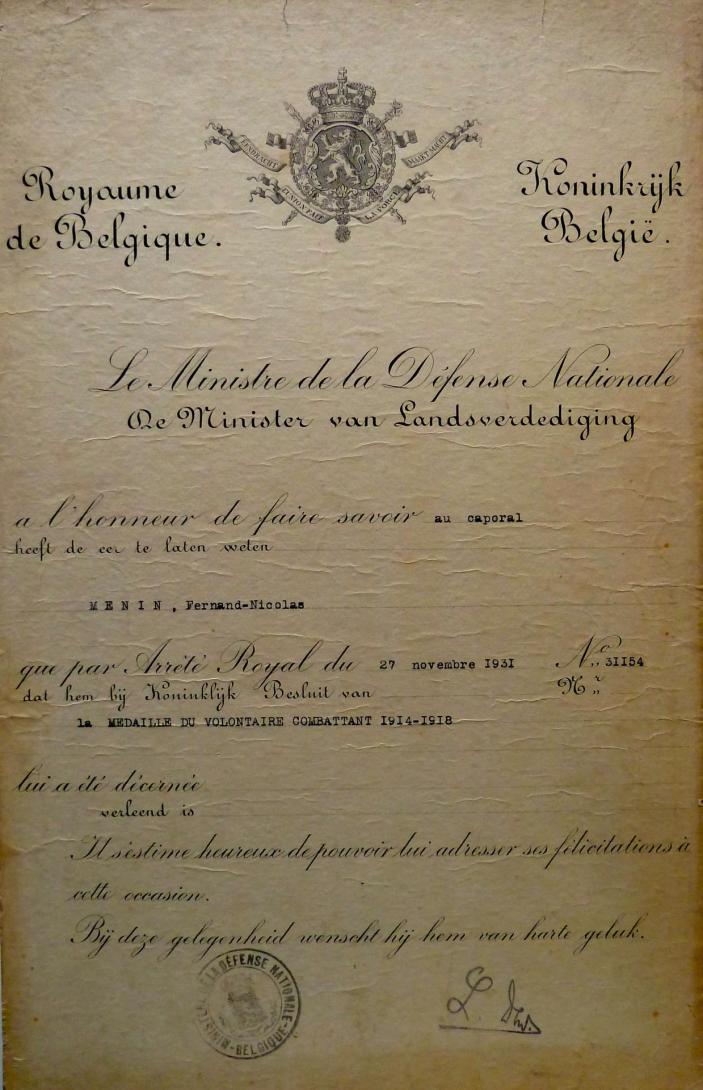 EENDRACHT MAAKT MACHT
L'UNION FAIT LA FORCE
Royaume
de Belgique.
Koninkrijk
België.
Le Ministre de la Défense Nationale
De Minister van Landsverdediging
a l'honneur de faire savoir au caporal
heeft de eer te laten weten
MENIN, Fernand-Nicolas
que par Arrêté Royal du 27 novembre 1931 No 31154
dat hem bij Koninklijk Besluit van Nr
la MEDAILLE DU VOLONTAIRE COMBATTANT 1914-1918
lui a été décernée
verleend is
Il s'estime heureux de pouvoir lui adresser ses félicitations à
cette occasion.
Bij deze gelegenheid wenscht hij hem van harte geluk.
LA DÉFENSE NATIONALE
BELGIQUE